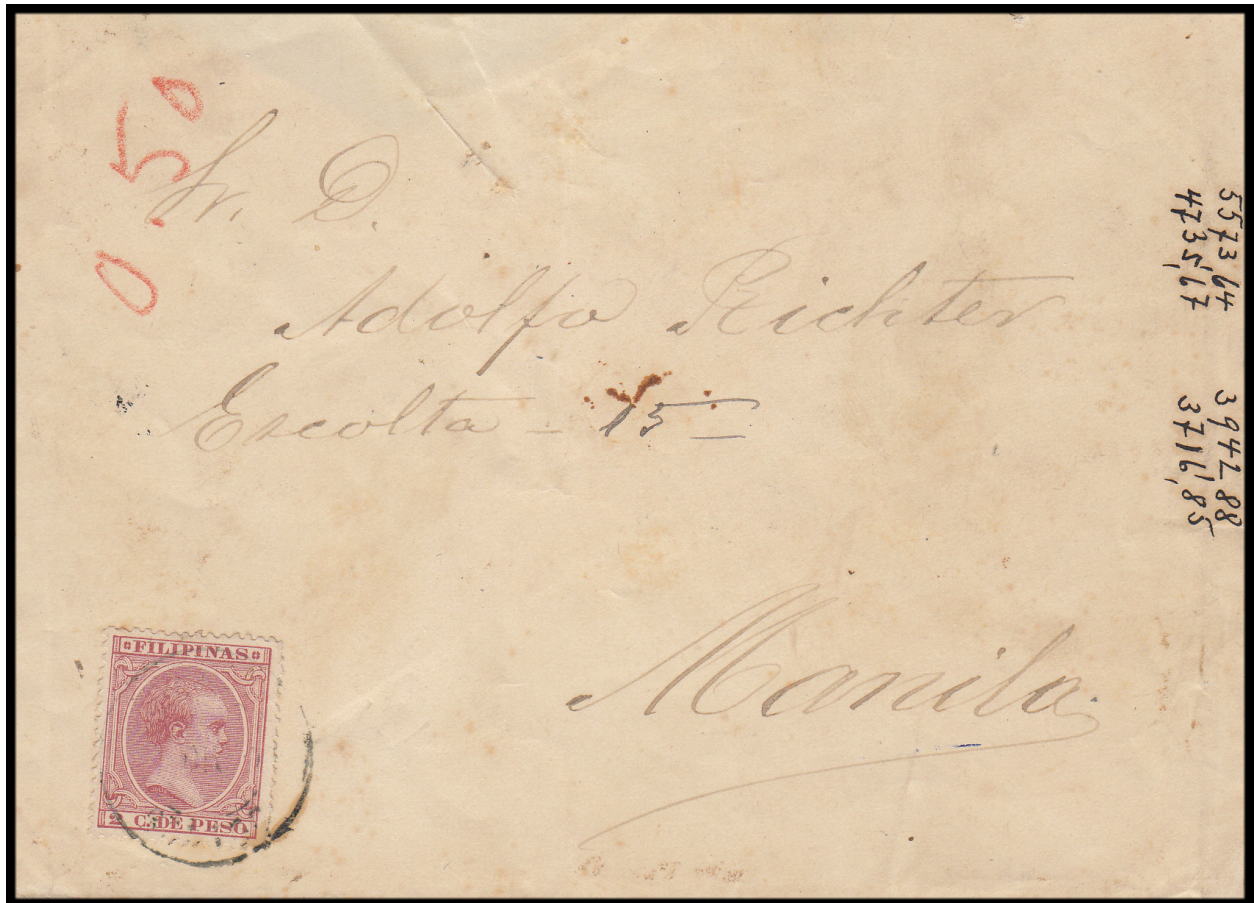 0.50
Sr. D.
Adolfo Richter
Escolta - 15 -
Manila.
5573,64 3942 88
4735,67 3716,85
FILIPINAS
2 C. DE PESO